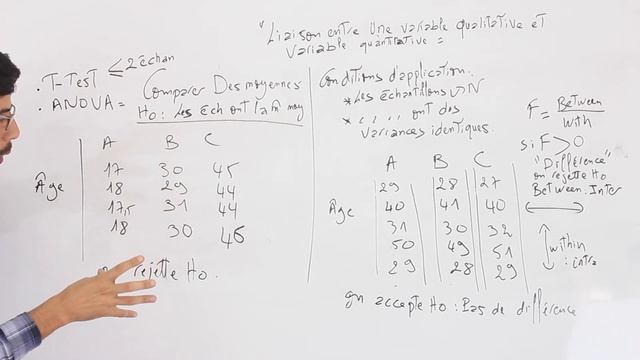 "Liaison entre Une variable qualitative et
variable quantitative =
. T-Test ≤ 2 échan
. ANOVA = Comparer Des moyennes
Ho: Les Ech ont la m moy
A B C
17 30 45
Âge 18 29 44
17,5 31 44
18 30 46
rejette Ho.
Conditions d'application.
* Les échantillons ∽ N
* " " ont des
variances identiques.
F = Between
With
si F > 0
"Différence"
on rejette Ho
Between: Inter
within
: intra
A B C
29 28 27
Âge 40 41 40
31 30 32
50 49 51
29 28 29
on accepte Ho : Pas de différence